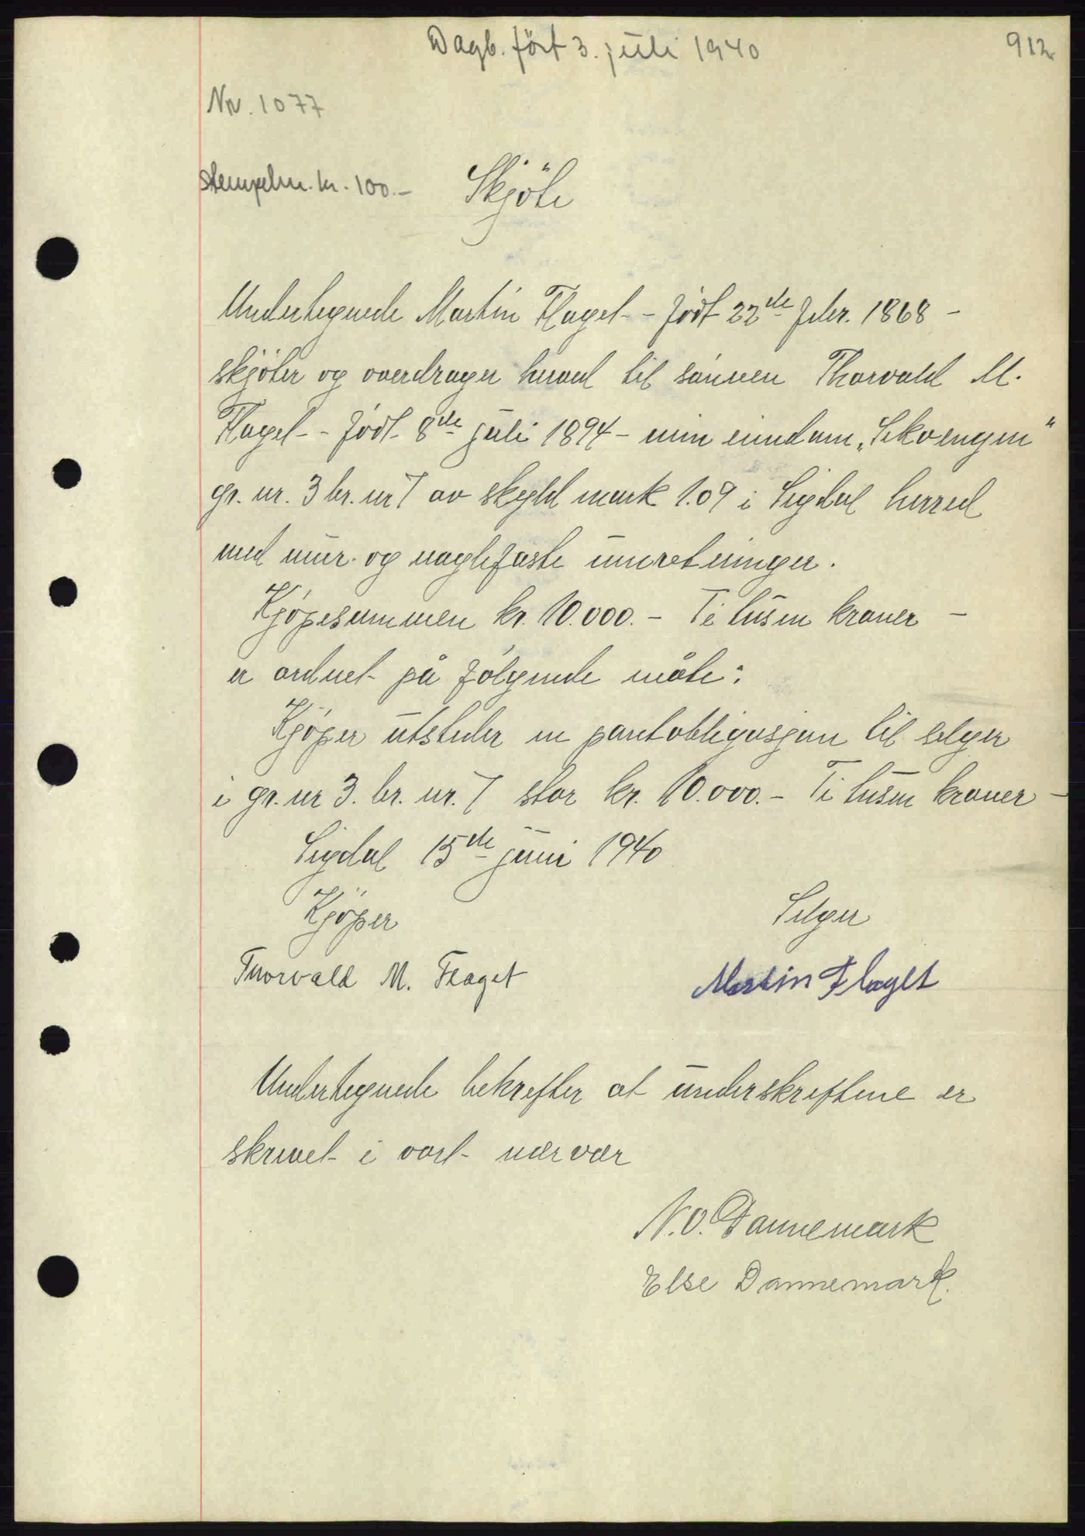 Dagb. ført 3. juli 1940
912
Nr. 1077
stempelm. kr. 100.-
Skjøte
Undertegnede Martin Flaget - født 22de febr. 1868 -
skjøter og overdrager herved til sønnen Thorvald M.
Flaget - født 8de juli 1894 - min eiendom „Sekvengen"
gr. nr. 3 br. nr 7 av skyld mark 1.09 i Sigdal herred
med mur- og naglefaste innretninger.
Kjøpesummen kr. 10.000.- Ti tusen kroner -
er ordnet på følgende måte:
Kjøper utsteder en pantobligasjon til selger
i gr. nr 3. br. nr. 7 stor kr. 10.000.- Ti tusen kroner -
Sigdal 15de juni 1940
Kjøper
Selger
Thorvald M. Flaget
Martin Flaget
Undertegnede bekrefter at underskriftene er
skrevet i vort nærvær
N.O. Dannemark
Else Dannemark.